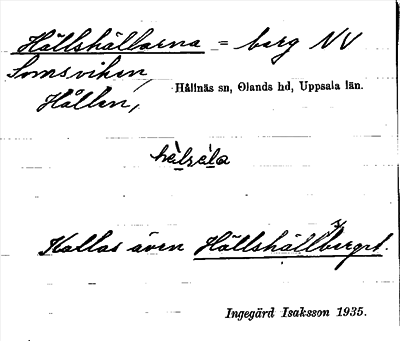 Hällshällarna = berg NV
Somsviken,
Hållen,
Hållnäs sn, Olands hd, Uppsala län.
Kallas även Hällshällbergst.
Ingegärd Isaksson 1935.